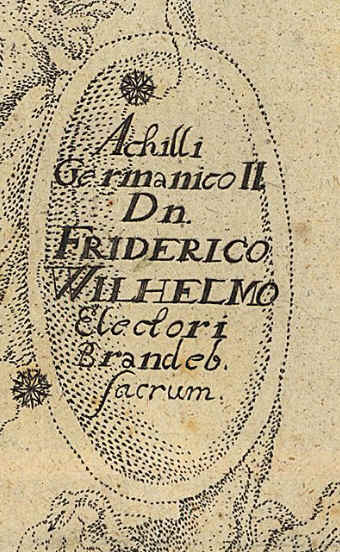 Achilli
Germanico II.
Dn.
FRIDERICO
WILHELMO
Electori
Brandeb.
sacrum.